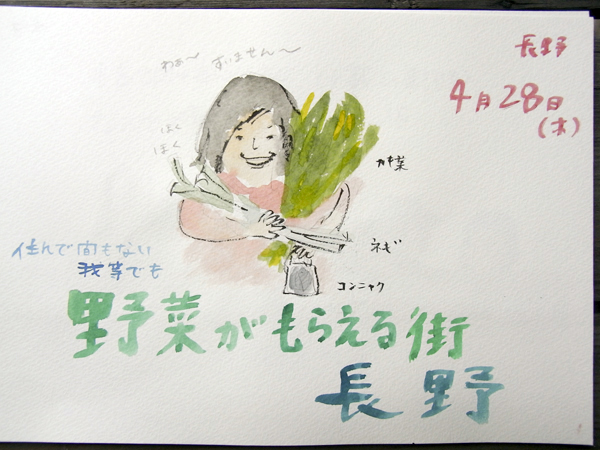 長野
4月28日
(木)
わぁ〜 すいません〜
ほく
ほく
カキ菜
ネギ
コンニャク
住んで間もない
我等でも
野菜がもらえる街
長野